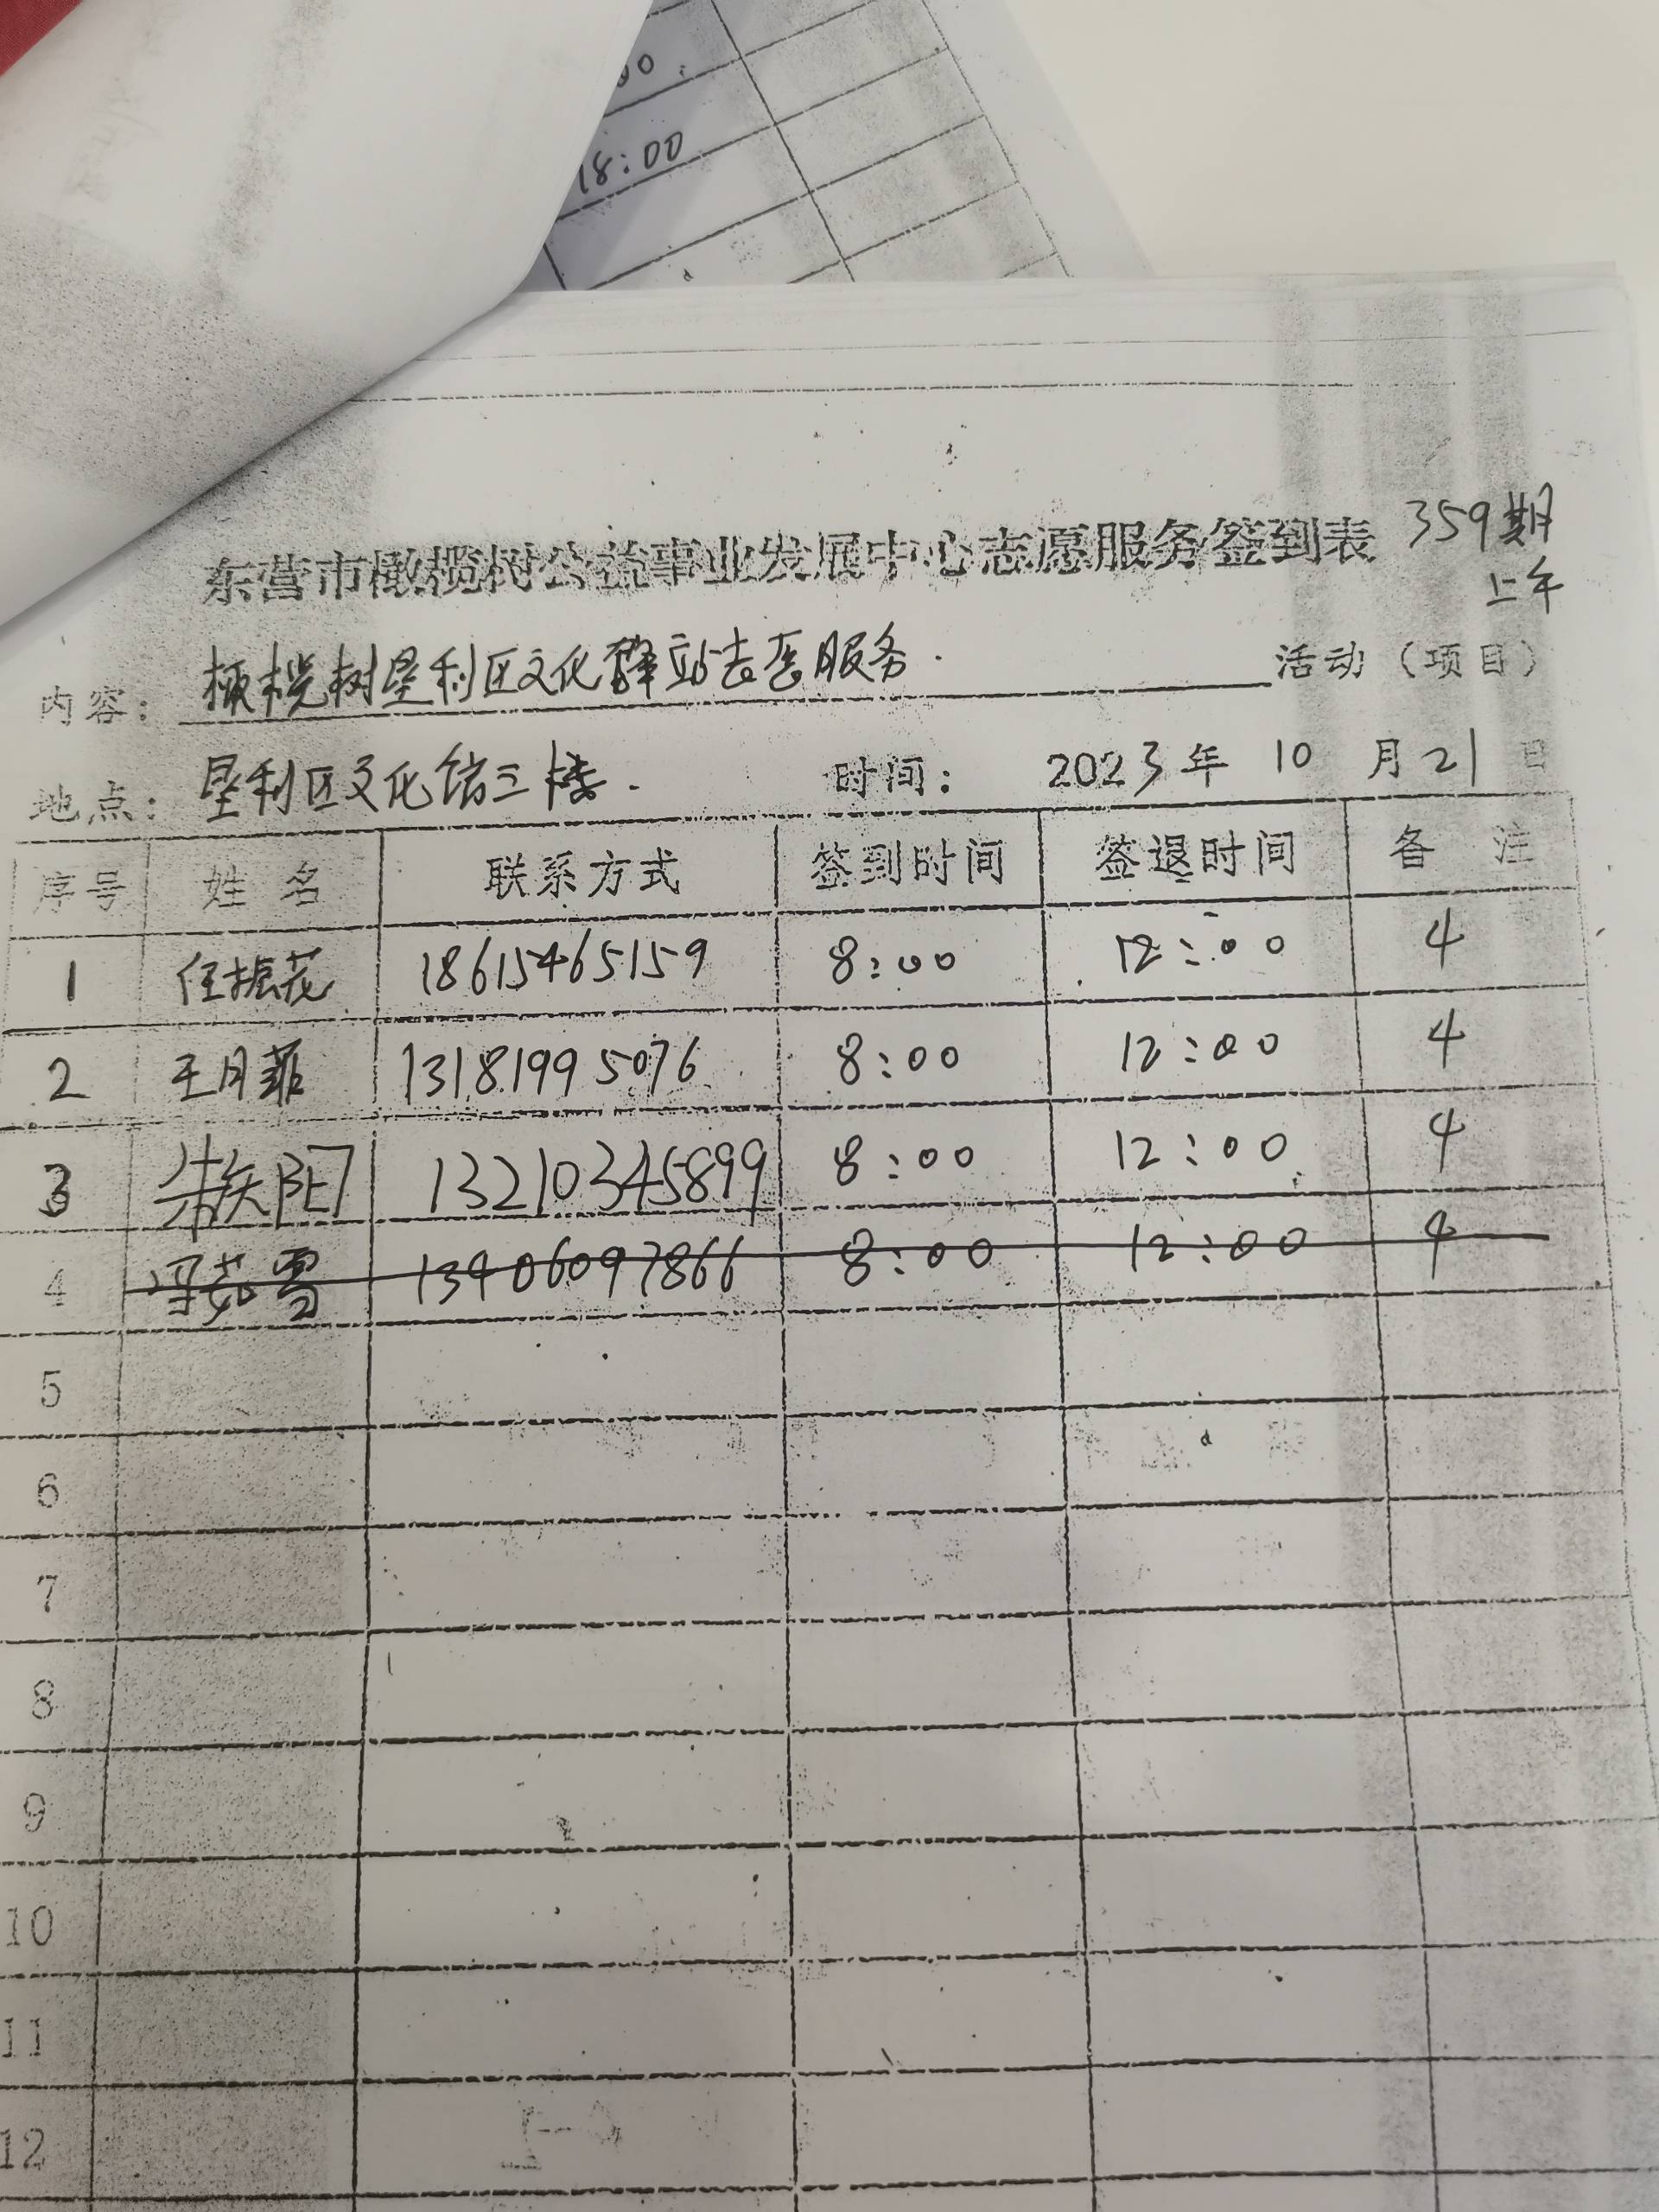 18:00
东营市橄榄树公益事业发展中心志愿服务签到表 359期
上午
内容: 橄榄树垦利区文化驿站志愿服务. 活动(项目)
地点: 垦利区文化馆三楼. 时间: 2023年 10 月21 日
序号 姓 名 联系方式 签到时间 签退时间 备 注
1 任振花 18615465159 8:00 12:00 4
2 王月菲 13181995076 8:00 12:00 4
3 13210345899 8:00 12:00 4
4 冯茹雪 13406097866 8:00 12:00 4
5
6
7
8
9
10
11
12